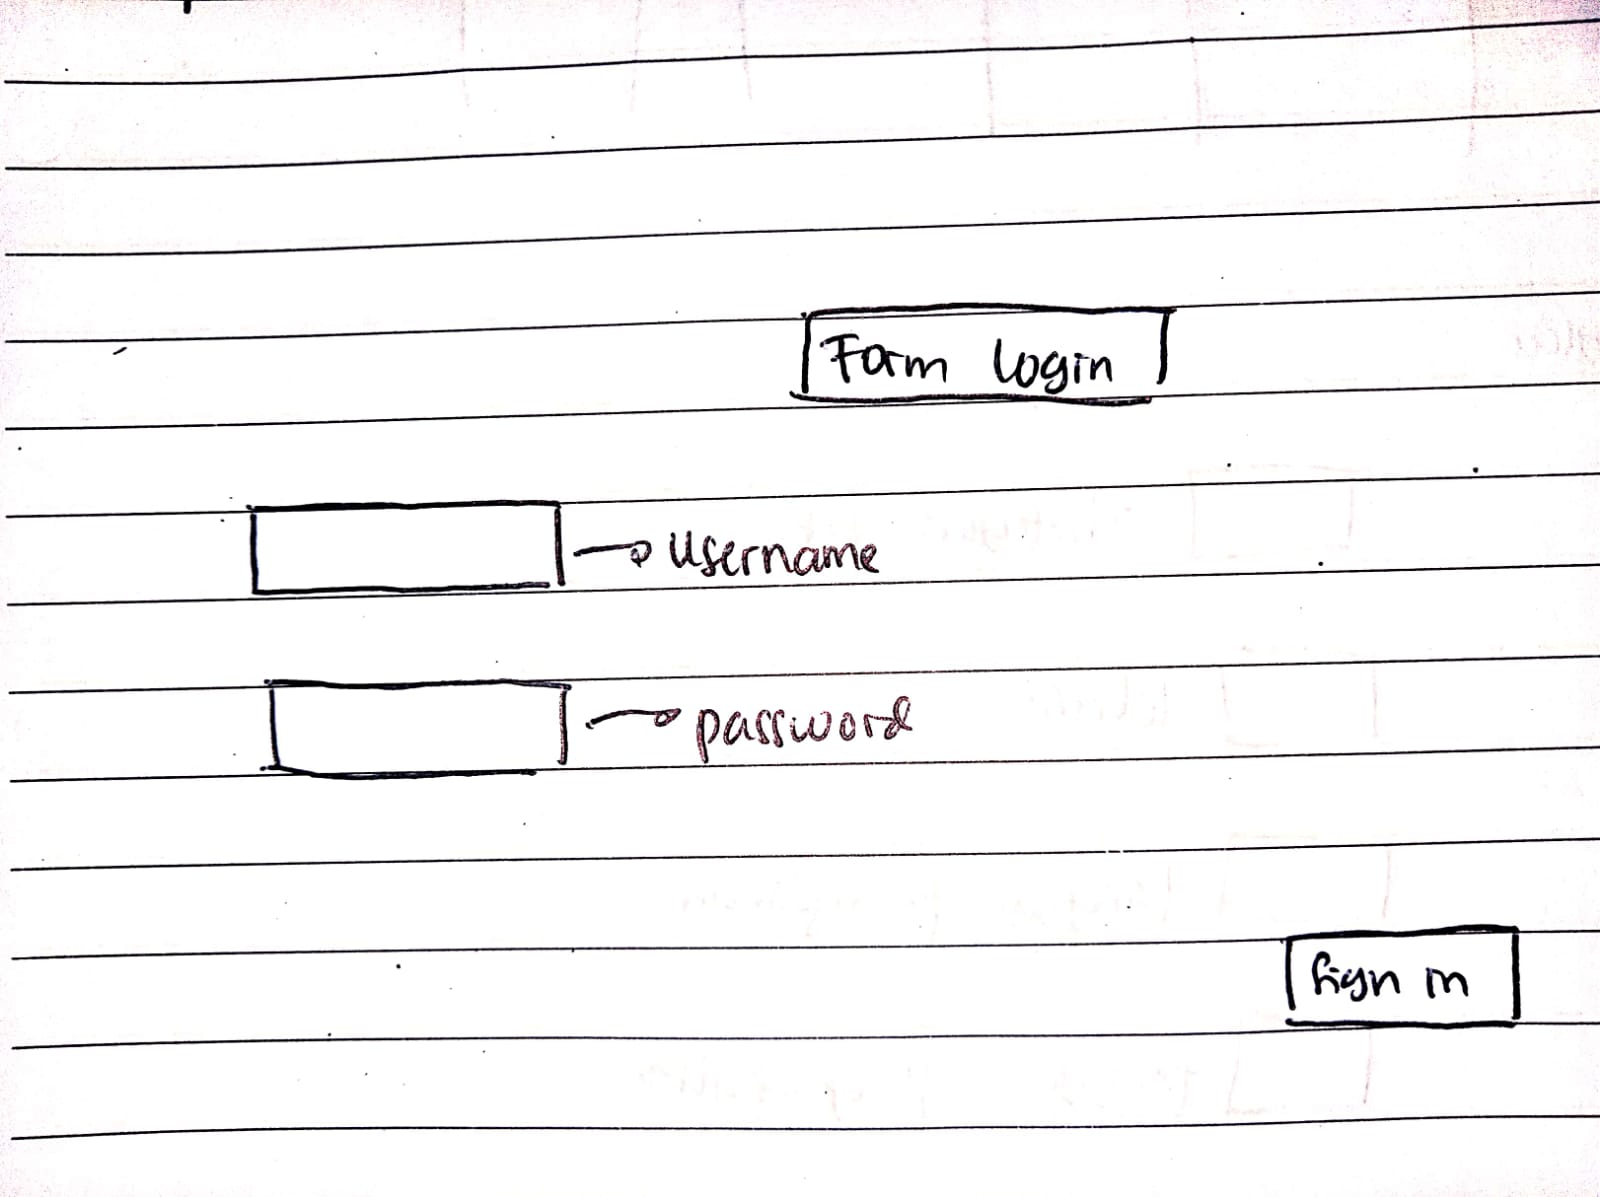 Form login
username
password
Sign in